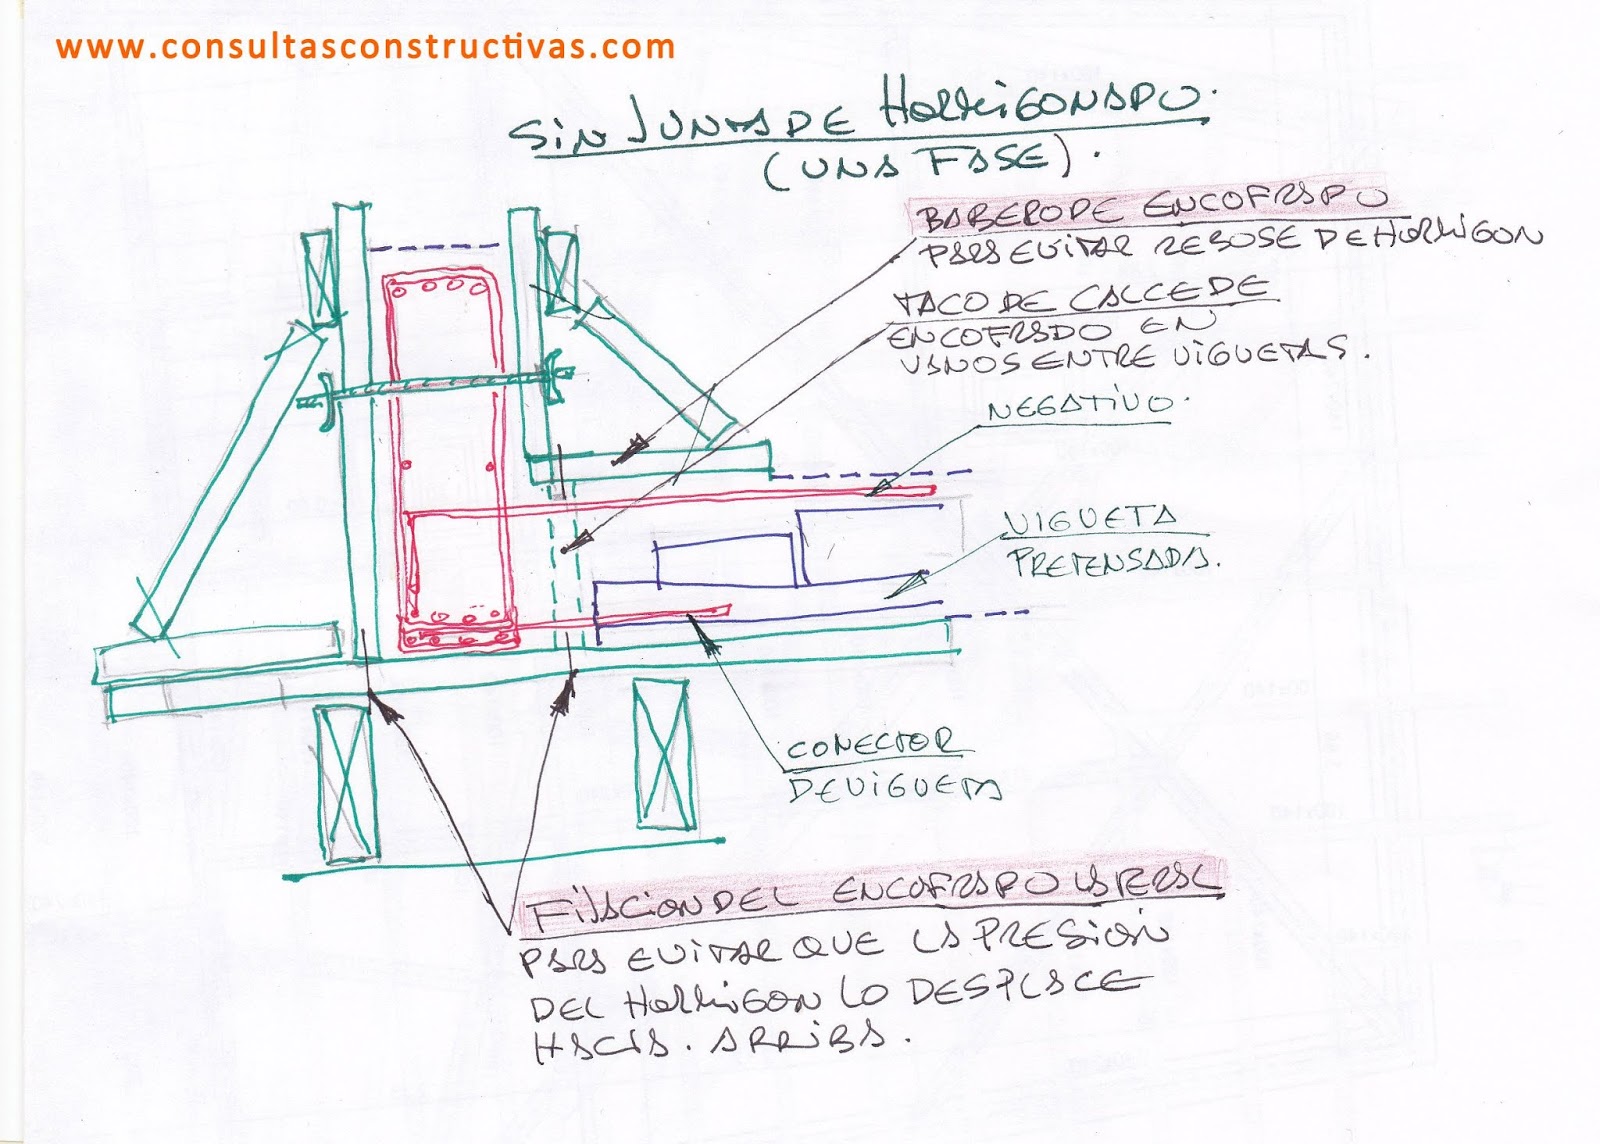 www.consultasconstructivas.com
SIN JUNTA DE HORMIGONADO.
(UNA FASE).
BABERO DE ENCOFRADO
PARA EVITAR REBOSE DE HORMIGON
TACO DE CALCE DE
ENCOFRADO EN
VANOS ENTRE VIGUETAS.
NEGATIVO.
VIGUETA
PRETENSADA.
CONECTOR
DE VIGUETA
FIJACION DEL ENCOFRADO LATERAL
PARA EVITAR QUE LA PRESIÓN
DEL HORMIGON LO DESPLACE
HACIA. ARRIBA.